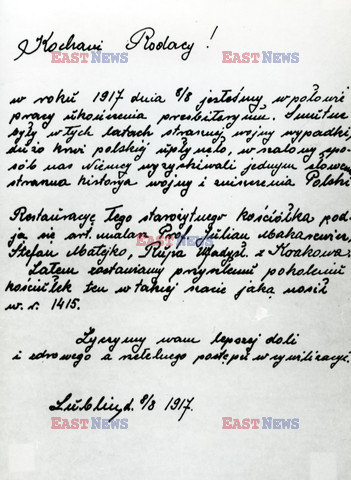 Kochani Rodacy!
w roku 1917 dnia 8/8 jesteśmy w połowie
pracy ukończenia presbiterjum. Smutne
były w tych latach strasznej wojny wypadki,
dużo krwi polskiej upłynęło, w szalony spo-
sób nas Niemcy wyzyskiwali jednym słowem
straszna historja wojny i zniszczenia Polski
Restaurację tego starożytnego kościółka pod-
ją się art. malarz Prof. Juljan Makarewicz,
Stefan Matejko, Rupa Władysł. z Krakowa.
Latem zostawiamy przyszłemu pokoleniu
kościółek ten w takiej szacie jaką nosił
w r. 1415.
Życzymy wam lepszej doli
i zdrowego a rzetelnego postępu w cywilizacji.
Lublin, d. 8/8 1917.
EAST NEWS
EAST NEWS
EAST NEWS
EAST NEWS
EAST NEWS
EAST NEWS